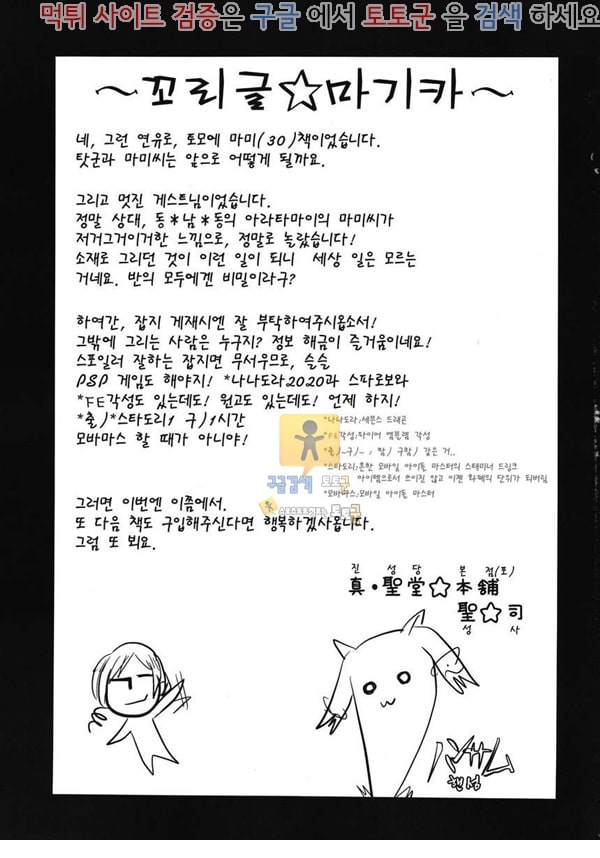 먹튀 사이트 검증은 구글 에서 토토군 을 검색 하세요
~꼬리글☆마기카~
네, 그런 연유로, 토모에 마미(30)책이었습니다.
탓군과 마미씨는 앞으로 어떻게 될까요.
그리고 멋진 게스트님이었습니다.
정말 상대, 동*남*동의 아라타마이의 마미씨가
저거그거이거한 느낌으로, 정말로 놀랐습니다!
소재로 그리던 것이 이런 일이 되니 세상 일은 모르는
거네요. 반의 모두에겐 비밀이라구?
하여간, 잡지 게재시엔 잘 부탁하여주시옵소서!
그밖에 그리는 사람은 누구지? 정보 해금이 즐거움이네요!
스포일러 잘하는 잡지면 무서우므로, 슬슬
PSP 게임도 해야지! *나나도라2020과 스파로보와
*FE각성도 있는데도! 원고도 있는데도! 언제 하지!
*출)*스타도리1 구)1시간
모바마스 할 때가 아니야!
*나나도라:세븐스 드래곤
*FE각성:파이어 엠블렘 각성
*출)~구)~ : 팜) 구함) 같은 거..
*스타도리:흔한 모바일 아이돌 마스터의 스테미너 드링크
아이템으로서 쓰이질 않고 이젠 화폐의 단위가 되버림
*모바마스:모바일 아이돌 마스터
구글검색 토토군
그러면 이번엔 이쯤에서.
또 다음 책도 구입해주신다면 행복하겠사옵니다.
그럼 또 뵈요.
진 성 당 본 점(포)
真・聖堂☆本舗
聖☆司
성 사
핸섬